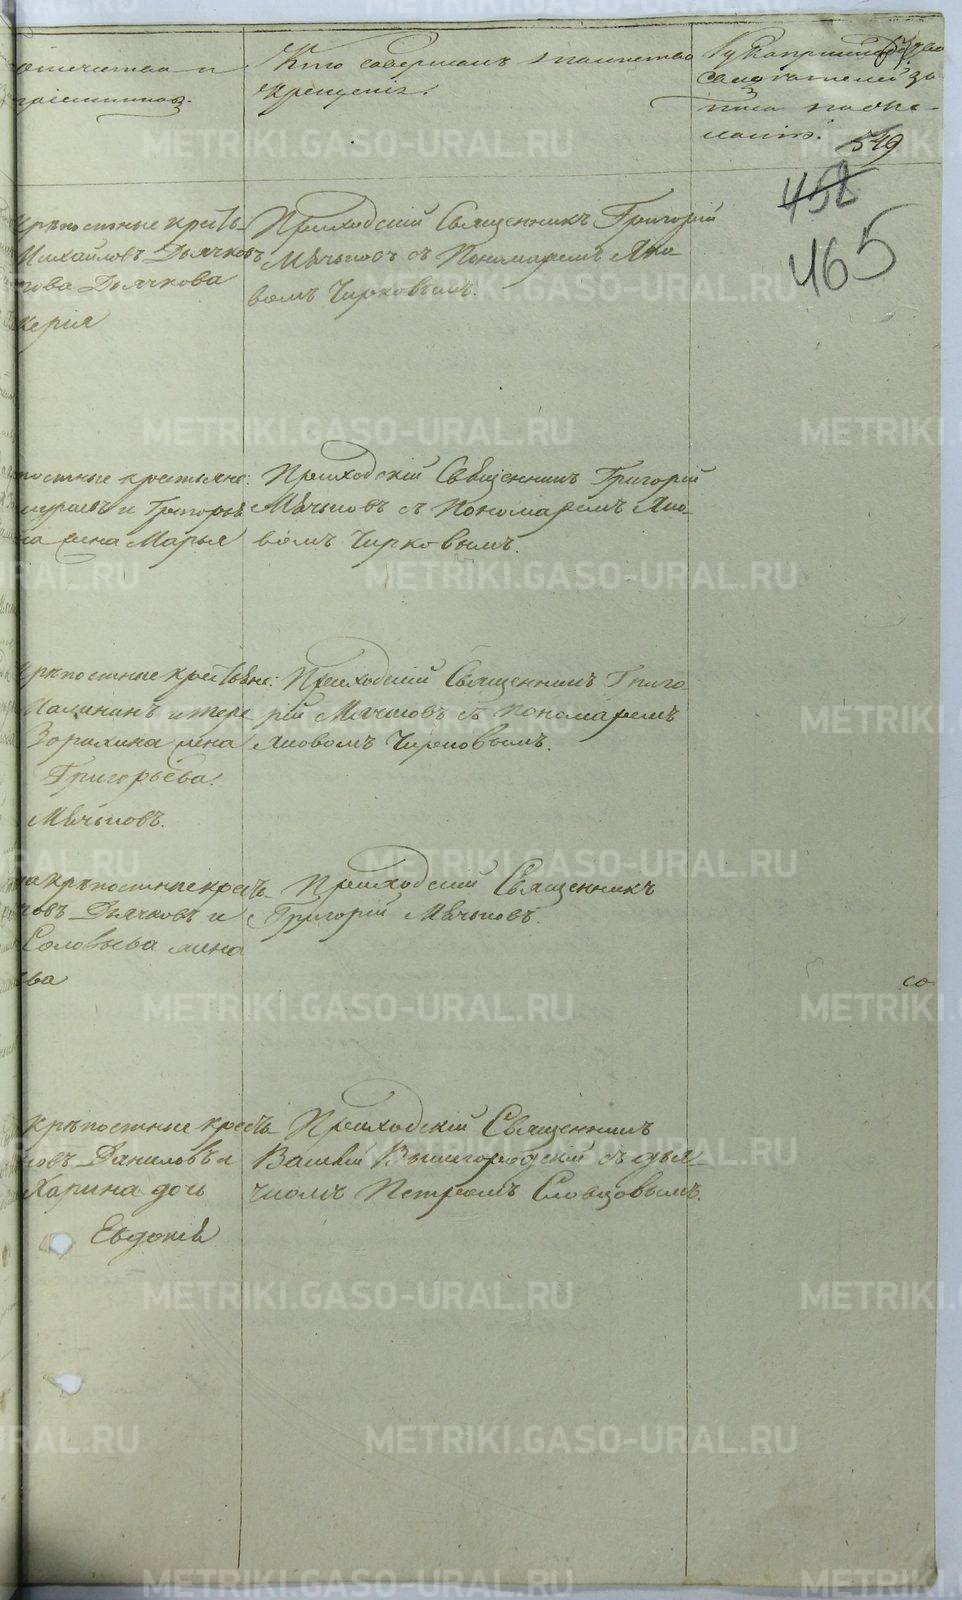 отчества и
Кто совершалъ таинство
крещенія.
Рукоприкладство
свидѣтелей за-
писи
549
452
465
крѣпостные крест
Михайловъ Дьячковъ,
Дьячкова
Приходскій Священникъ Григорій
Мячьковъ съ Пономаремъ Яко-
вомъ Чирковымъ.
крестьяне:
и Григорьева
жена Марья
Приходскій Священникъ Григорій
Мячьковъ съ Пономаремъ Яко-
вомъ Чирковымъ.
крѣпостные крестьяне:
Калининъ и
жена
Григорьева.
Мячьковъ.
Приходскій Священникъ Григо-
рій Мячьковъ съ Пономаремъ
Яковомъ Чирковымъ.
крѣпостные крестъ-
Дьячковъ и
Соловьева жена
ева
Приходскій Священникъ
Григорій Мячьковъ.
со
крѣпостные крестъ-
Даниловъ и
Харина дочь
Евдокія
Приходскій Священникъ
Василій Вышегородскій съ дья-
чкомъ Петромъ Словцовымъ.
METRIKI.GASO-URAL.RU